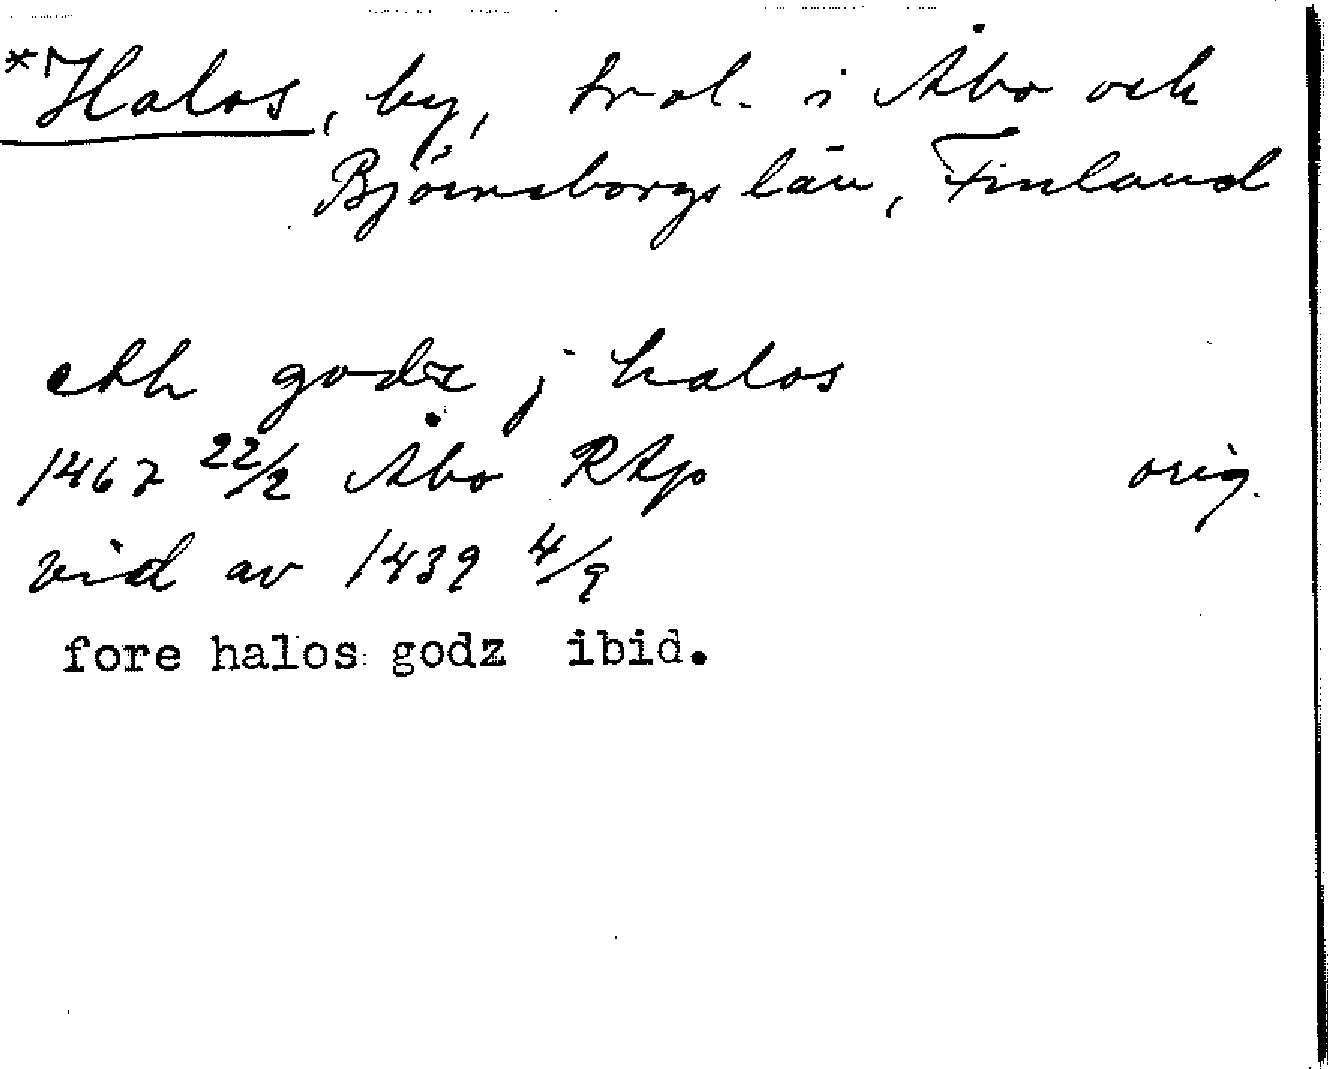 *Halos, by, trol. i Åbo och
Björneborgs län, Finland
eth godz j halos
1467 22/2 Åbo RAp orig.
vid av 1439 4/9
fore halos godz ibid.